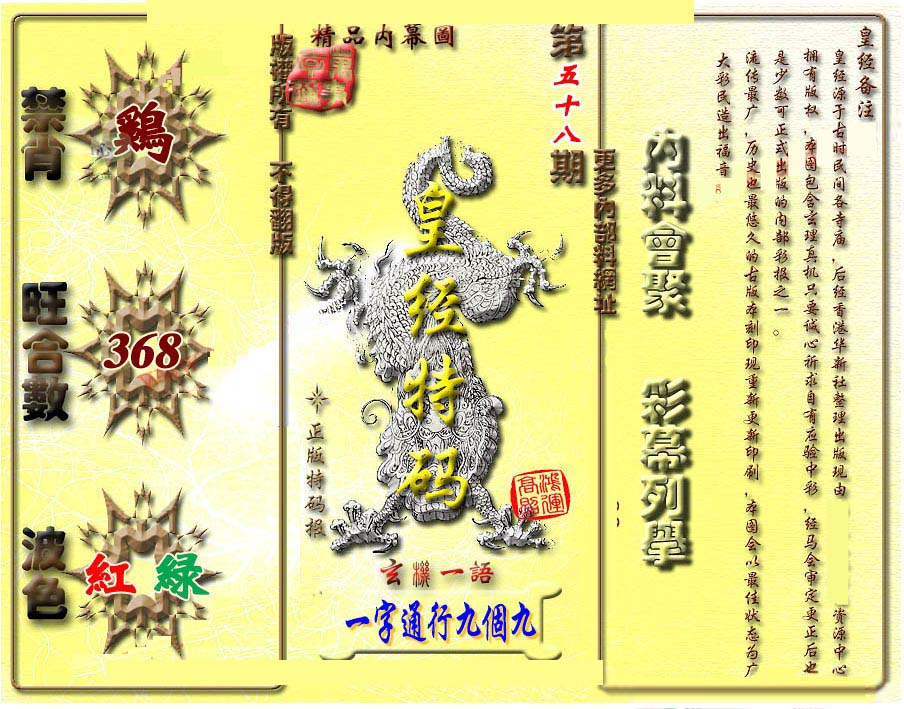 皇经备注
皇经源于古时民间各寺庙,后经香港华新社整理出版现由 资源中心
拥有版权,本图包含玄理真机只要诚心祈求自有应验中彩,经马会审定更正后也
是少数可正式出版的内部彩报之一。
流传最广,历史也最悠久的古版本刻印现重新更新印刷,本图会以最佳状态为广
大彩民造出福音
内料會聚 彩幕列舉
更多内部料網址
第五十八期
精品内幕圖
皇经特码
※正版特码报
鴻運高照
玄機一語
一字通行九個九
版權所有 不得翻版
禁肖
鷄
旺合數
368
波色
紅 綠